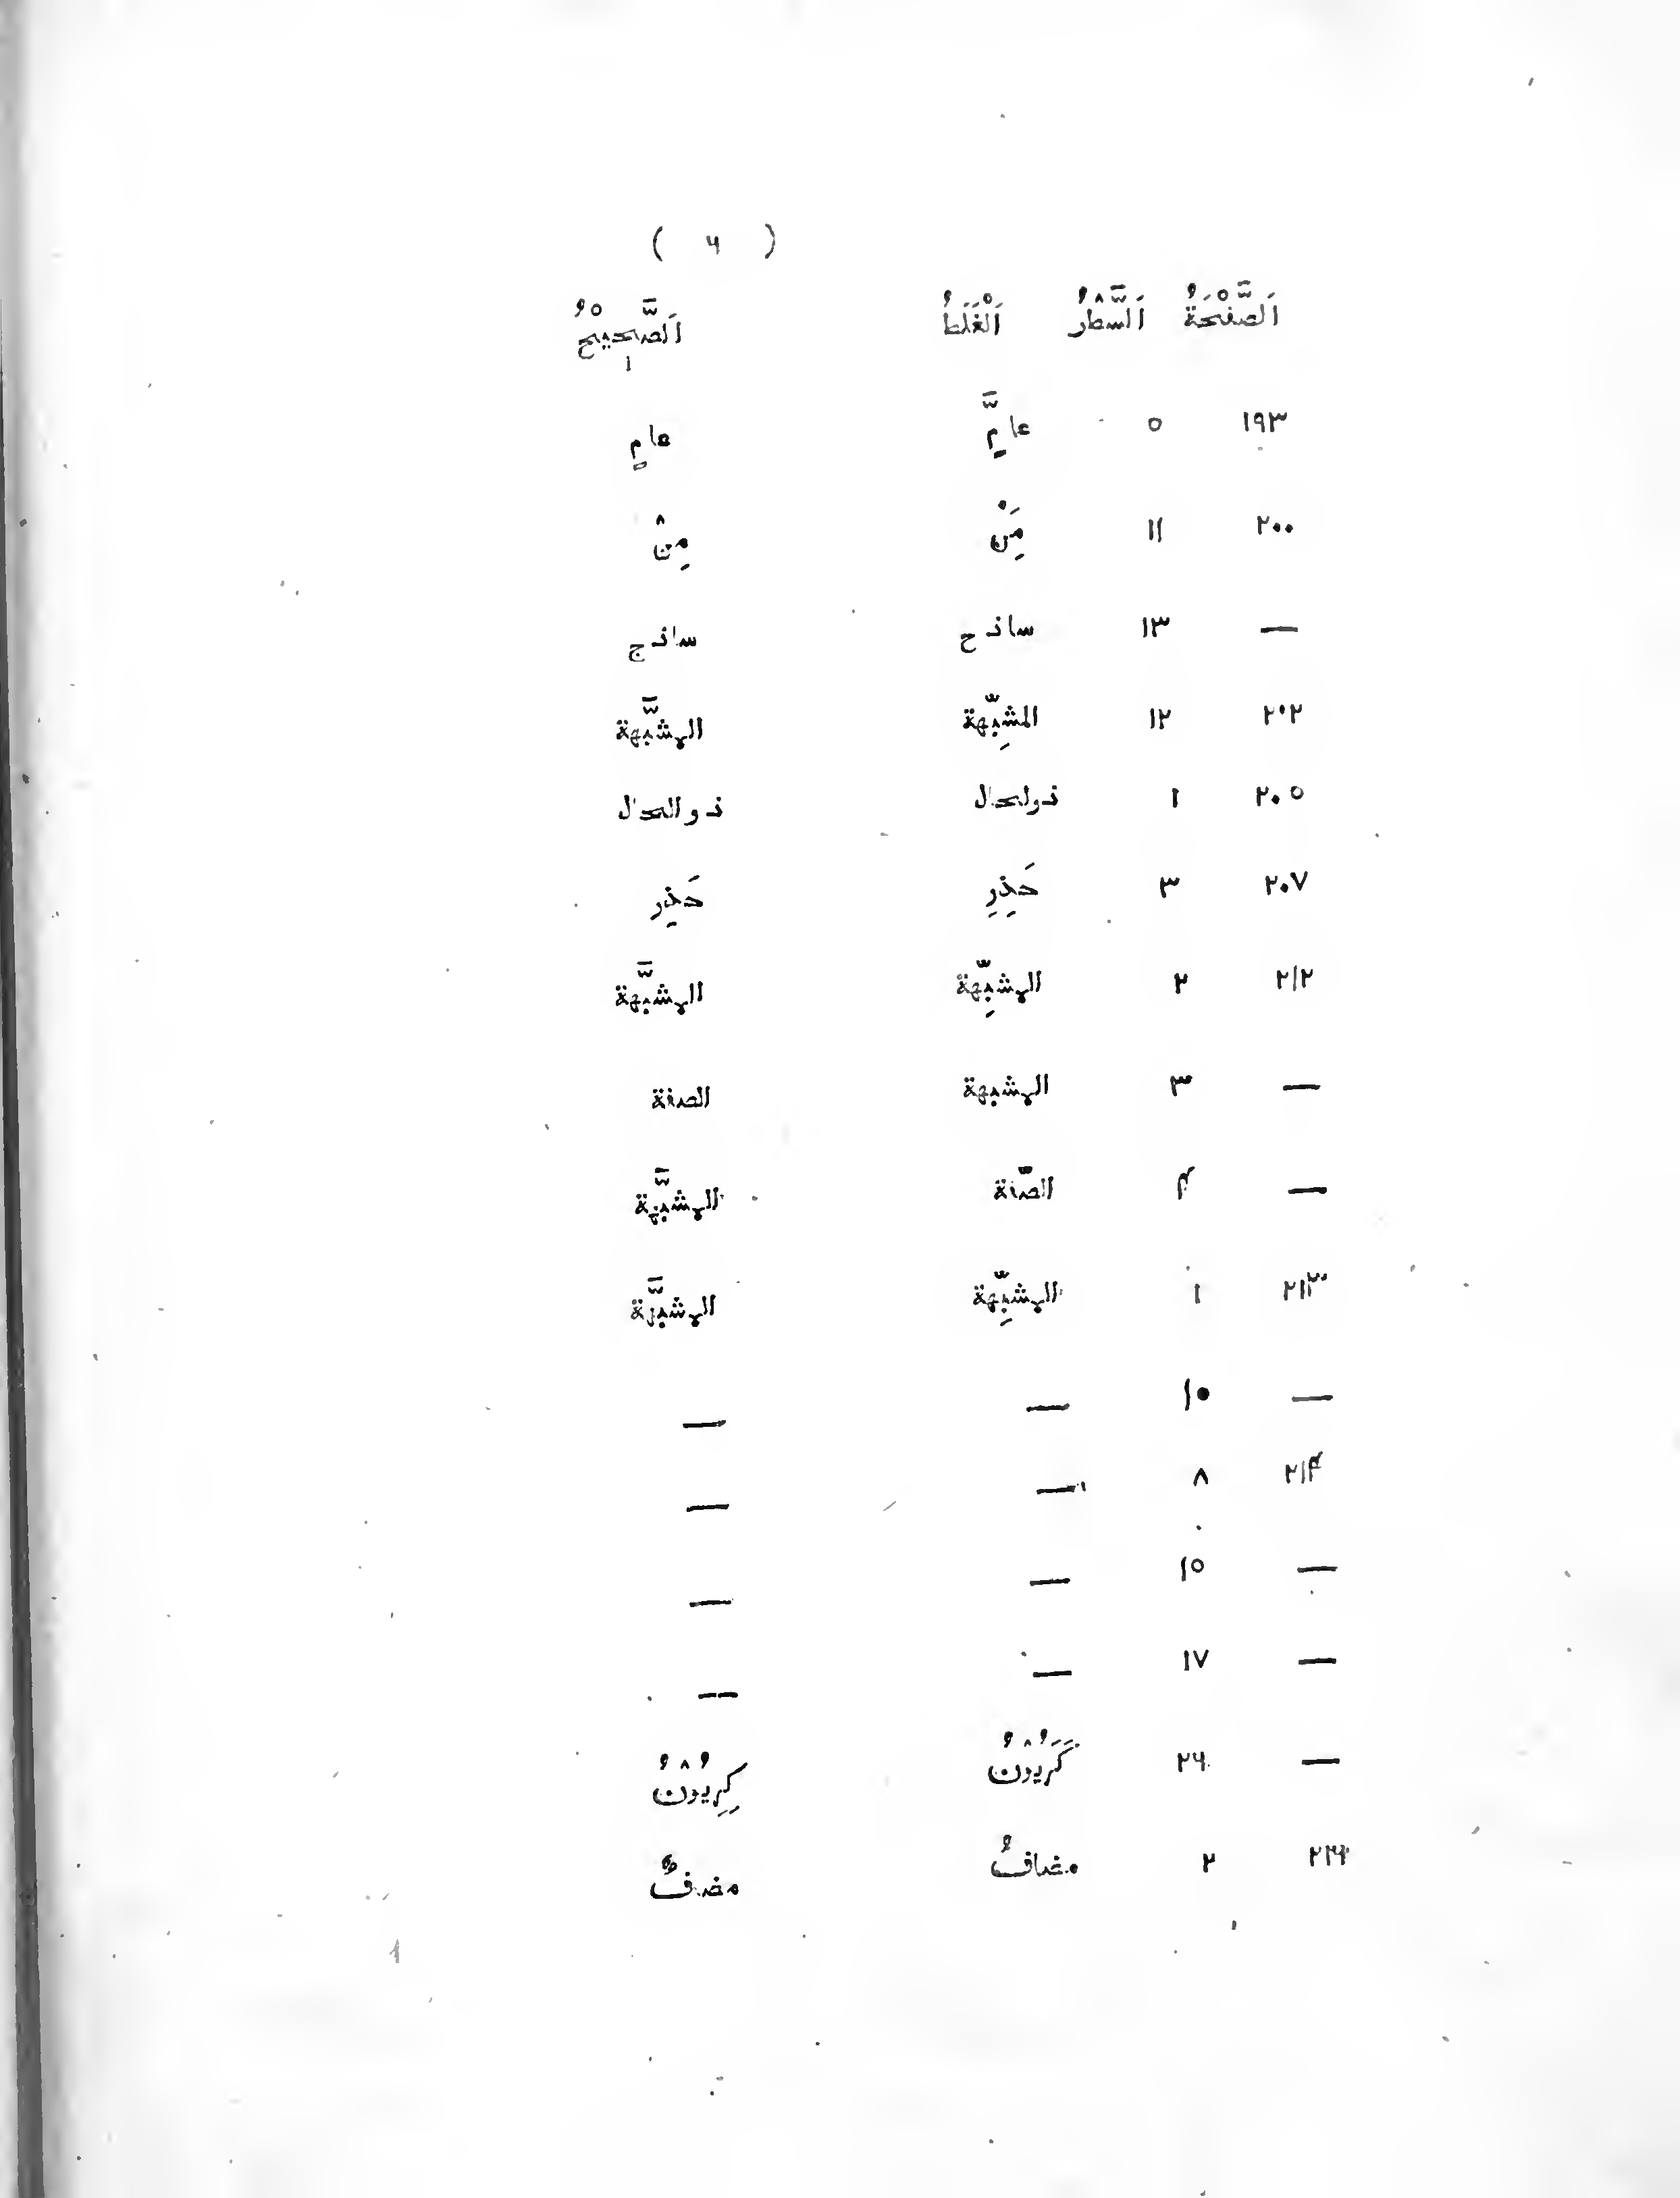 ( ۶ )
اَلصَّفْحَةُ اَلسَّطْرُ اَلْغَلَطُ اَلصَّحِيْحُ
١٩٣ ٥ عامٍّ عامٍ
٢٠٠ ١١ مِنَْ مِنْ
— ١٣ ساذح ساذج
٢٠٢ ١٢ المشبِّهة المشبَّهة
٢٠٥ ١ ذولحال ذو الحال
٢٠٧ ٣ حَذِرِ حَذِر
٢١٢ ٢ المشبِّهة المشبَّهة
— ٣ المشبهة الصفة
— ۴ الصّفة المشبَّهة
٢١٣ ١ المشبِّهة المشبَّهة
— ١٠ — —
٢١۴ ٨ — —
— ١٥ — —
— ١٧ — —
— ٢۶
٢ مضافُ مضافٌ